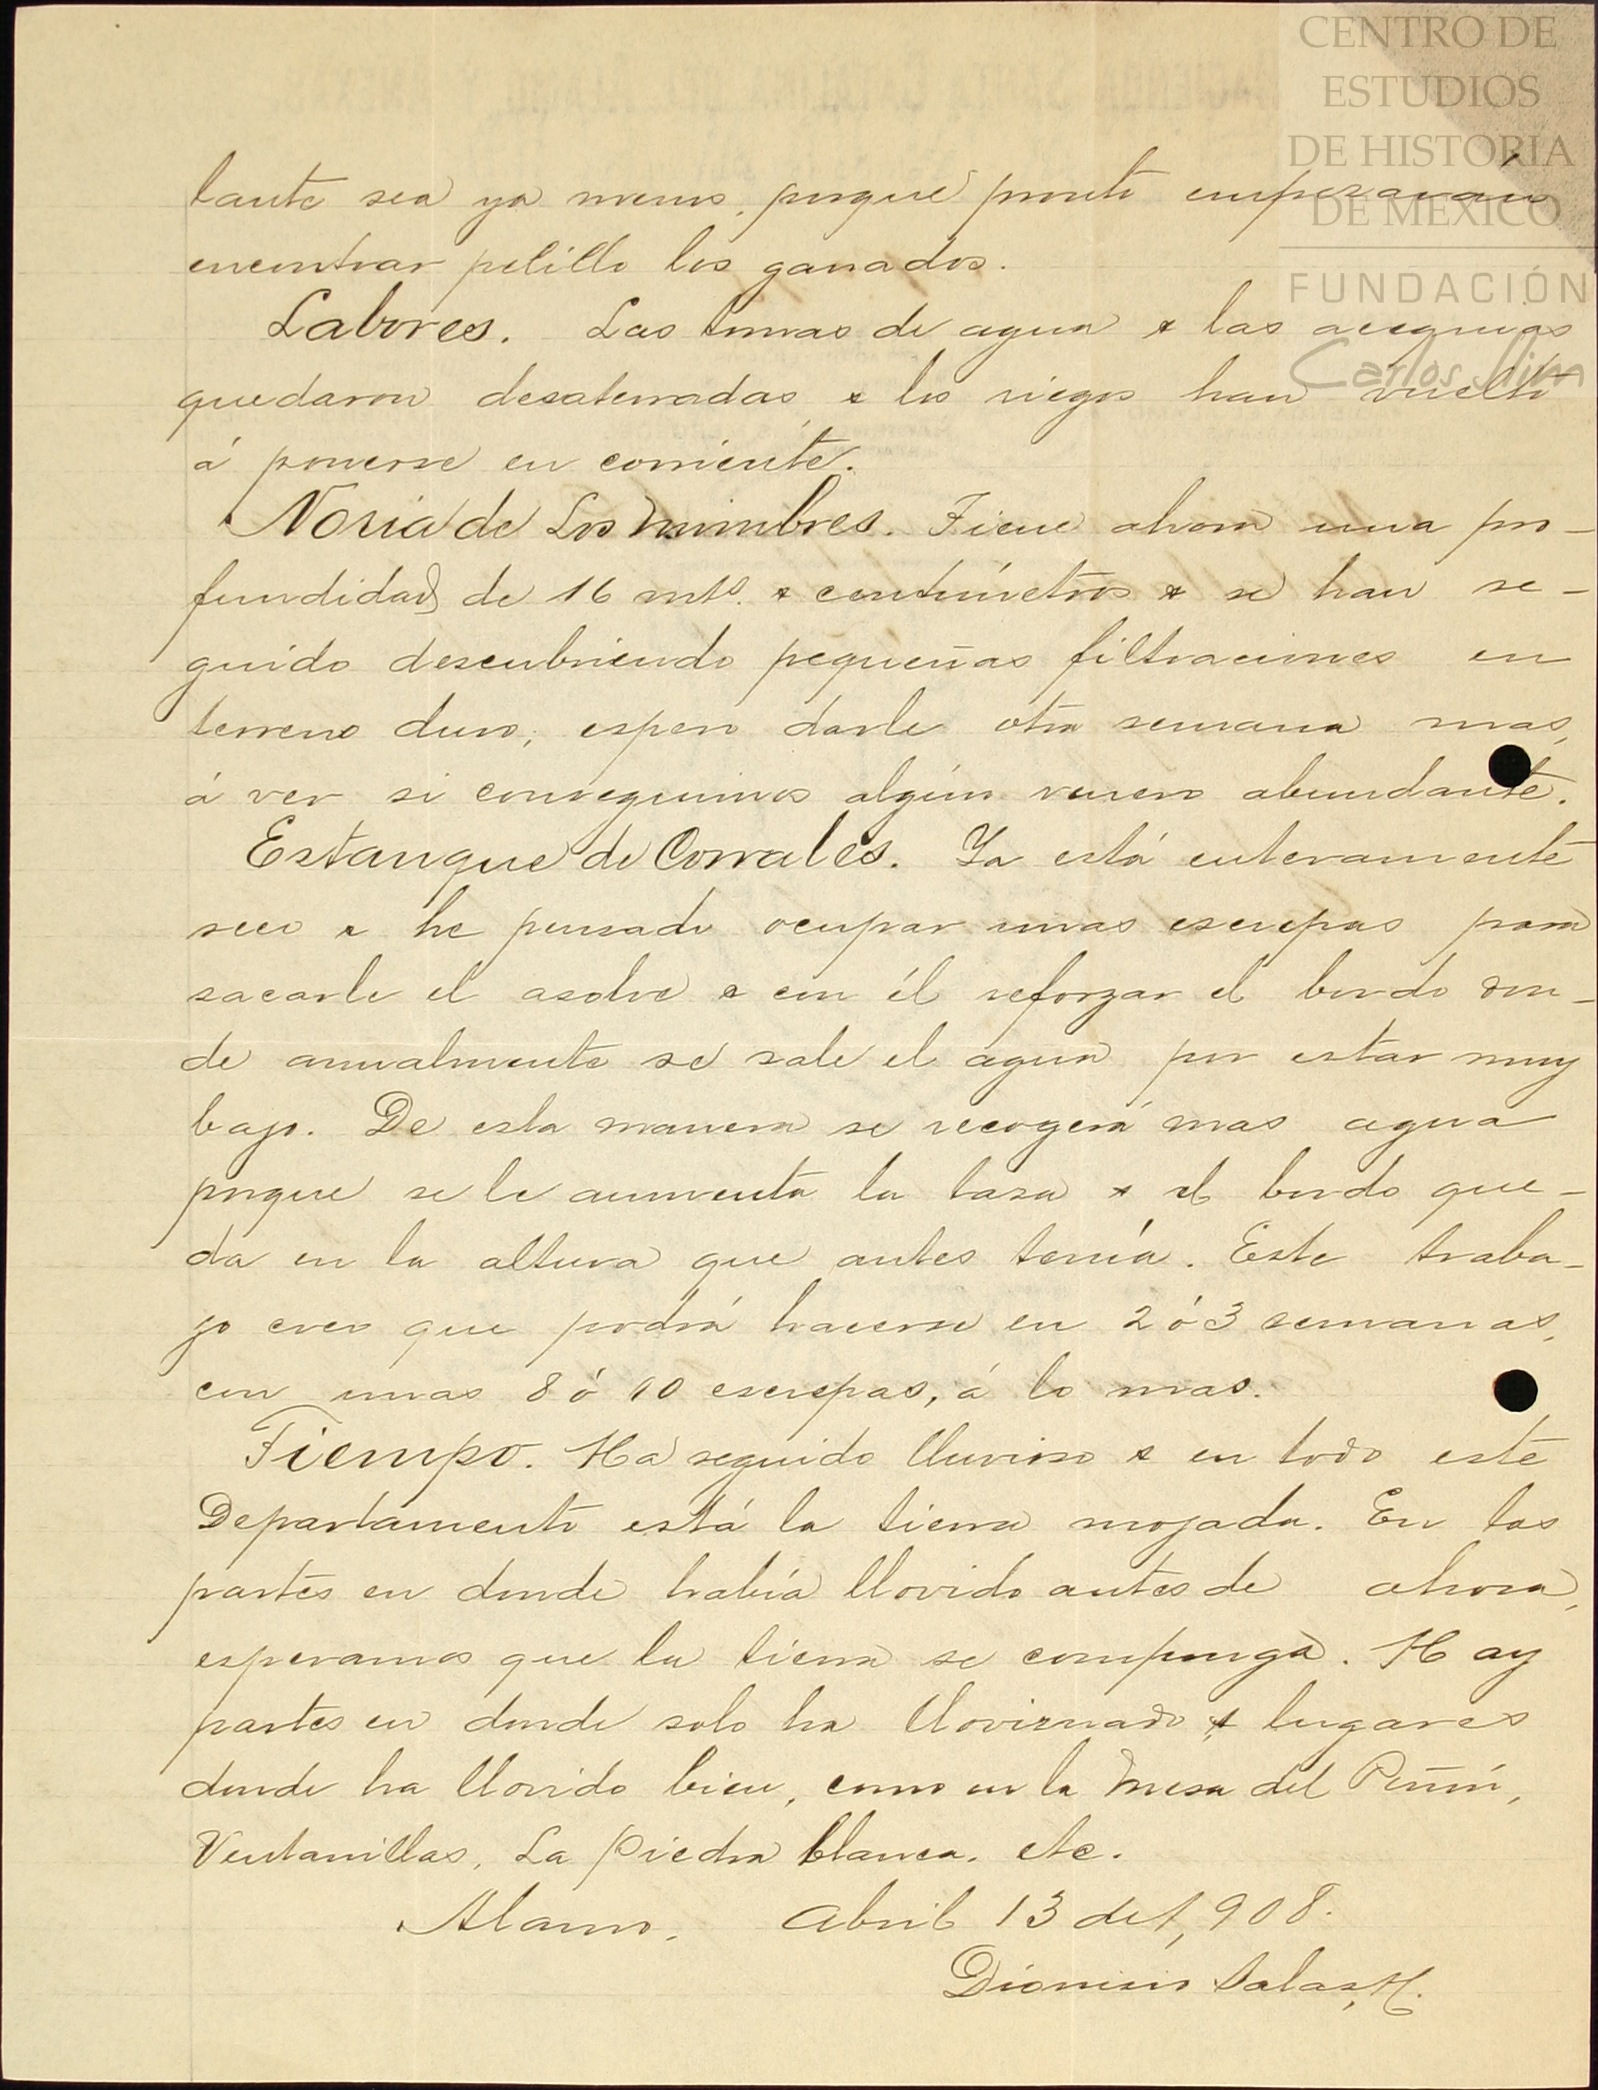 CENTRO DE
ESTUDIOS
DE HISTORIA
DE MEXICO
FUNDACIÓN
Carlos Slim
tante sea ya menos, porque pronto empezarán
encontrar pelillo los ganados.
Labores. Las tomas de agua & las acequias
quedaron desaterradas & los riegos han vuelto
á ponerse en corriente.
Noria de Los Mimbres. Tiene ahora una pro-
fundidad de 16 mts. & centímetros & se han se-
guido descubriendo pequeñas filtraciones en
terreno duro, espero darle otra semana mas,
á ver si conseguimos algún venero abundante.
Estanque de Corrales. Ya está enteramente
seco & he pensado ocupar unas escrepas para
sacarle el asolve & con él reforzar el bordo don-
de anualmente se sale el agua por estar muy
bajo. De esta manera se recogerá mas agua
porque se le aumenta la tasa & el bordo que-
da en la altura que antes tenía. Este traba-
jo creo que podrá hacerse en 2 ó 3 semanas,
con unas 8 ó 10 escrepas, á lo mas.
Tiempo. Ha seguido lluvioso & en todo este
Departamento está la tierra mojada. En las
partes en donde había llovido antes de ahora,
esperamos que la tierra se componga. Hay
partes en donde solo ha lloviznado & lugares
donde ha llovido bien, como en la Mesa del Piñón,
Ventanillas, La Piedra blanca. etc.
Alamo, Abril 13 de 1,908.
Dionisio Salas H.